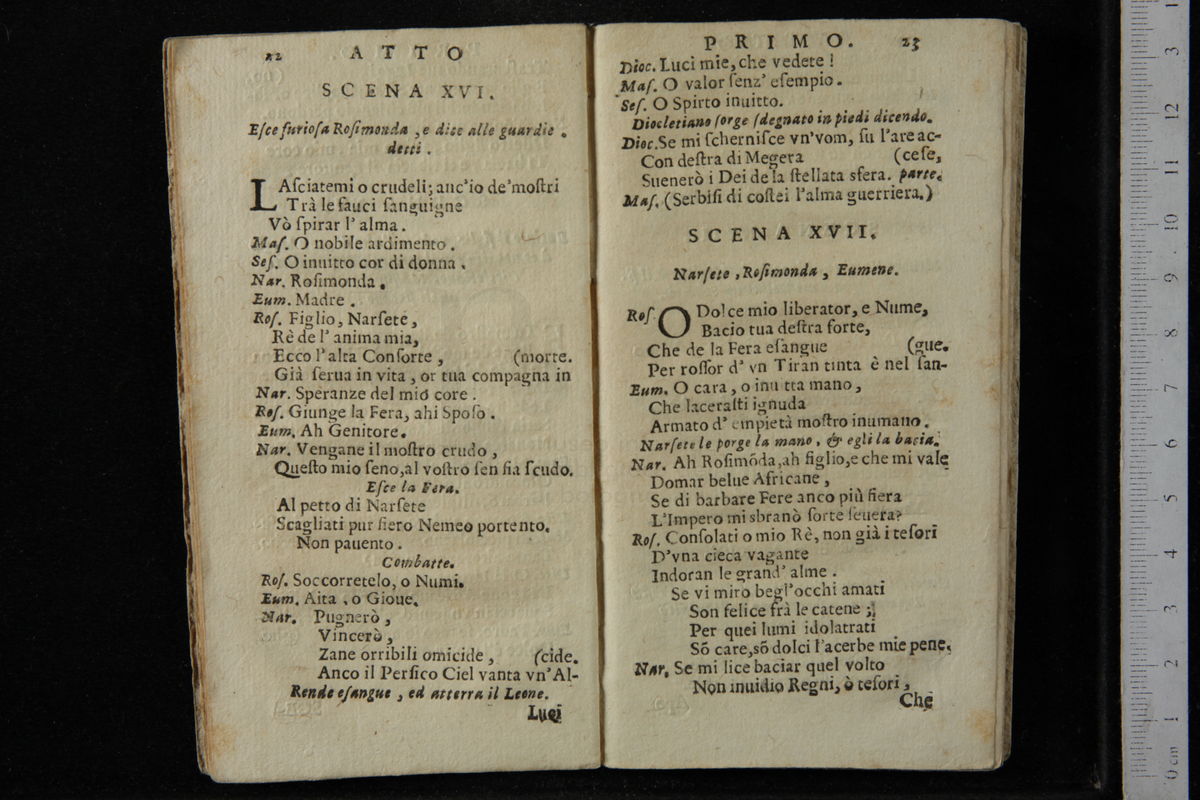 22 ATTO
SCENA XVI.
Eſce furioſa Roſimonda, e dice alle guardie.
detti.
LAſciatemi o crudeli; anc'io de'moſtri
Trà le fauci ſanguigne
Vò ſpirar l'alma.
Maſ. O nobile ardimento.
Seſ. O inuitto cor di donna.
Nar. Roſimonda.
Eum. Madre.
Roſ. Figlio, Narſete,
Rè de l'anima mia,
Ecco l'alta Conſorte, (morte.
Già ſerua in vita, or tua compagna in
Nar. Speranze del mio core.
Roſ. Giunge la Fera, ahi Spoſo.
Eum. Ah Genitore.
Nar. Vengane il moſtro crudo,
Queſto mio ſeno, al voſtro ſen ſia ſcudo.
Eſce la Fera.
Al petto di Narſete
Scagliati pur fiero Nemeo portento.
Non pauento.
Combatte.
Roſ. Soccorretelo, o Numi.
Eum. Aita, o Gioue.
Nar. Pugnerò,
Vincerò,
Zane orribili omicide, (cide.
Anco il Perſico Ciel vanta vn'Al-
Rende eſangue, ed atterra il Leone.
Luci
PRIMO. 23
Dioc. Luci mie, che vedete!
Maſ. O valor ſenz'eſempio.
Seſ. O Spirto inuitto.
Diocletiano ſorge ſdegnato in piedi dicendo.
Dioc. Se mi ſcherniſce vn'vom, ſu l'are ac-
Con deſtra di Megera (ceſe,
Suenerò i Dei de la ſtellata sfera. parte.
Maſ. (Serbiſi di coſtei l'alma guerriera.)
SCENA XVII.
Narſete, Roſimonda, Eumene.
Roſ. O Dolce mio liberator, e Nume,
Bacio tua deſtra forte,
Che de la Fera eſangue (gue.
Per roſſor d'vn Tiran tinta è nel ſan-
Eum. O cara, o inu tta mano,
Che laceraſti ignuda
Armato d'empietà moſtro inumano.
Narſete le porge la mano, & egli la bacia.
Nar. Ah Roſimōda, ah figlio, e che mi vale
Domar belue Africane,
Se di barbare Fere anco più fiera
L'Impero mi sbranò ſorte ſeuera?
Roſ. Conſolati o mio Rè, non già i teſori
D'vna cieca vagante
Indoran le grand'alme.
Se vi miro begl'occhi amati
Son felice frà le catene;
Per quei lumi idolatrati
Sō care, sō dolci l'acerbe mie pene.
Nar. Se mi lice baciar quel volto
Non inuidio Regni, ò teſori,
Che
0 cm 1 2 3 4 5 6 7 8 9 10 11 12 3